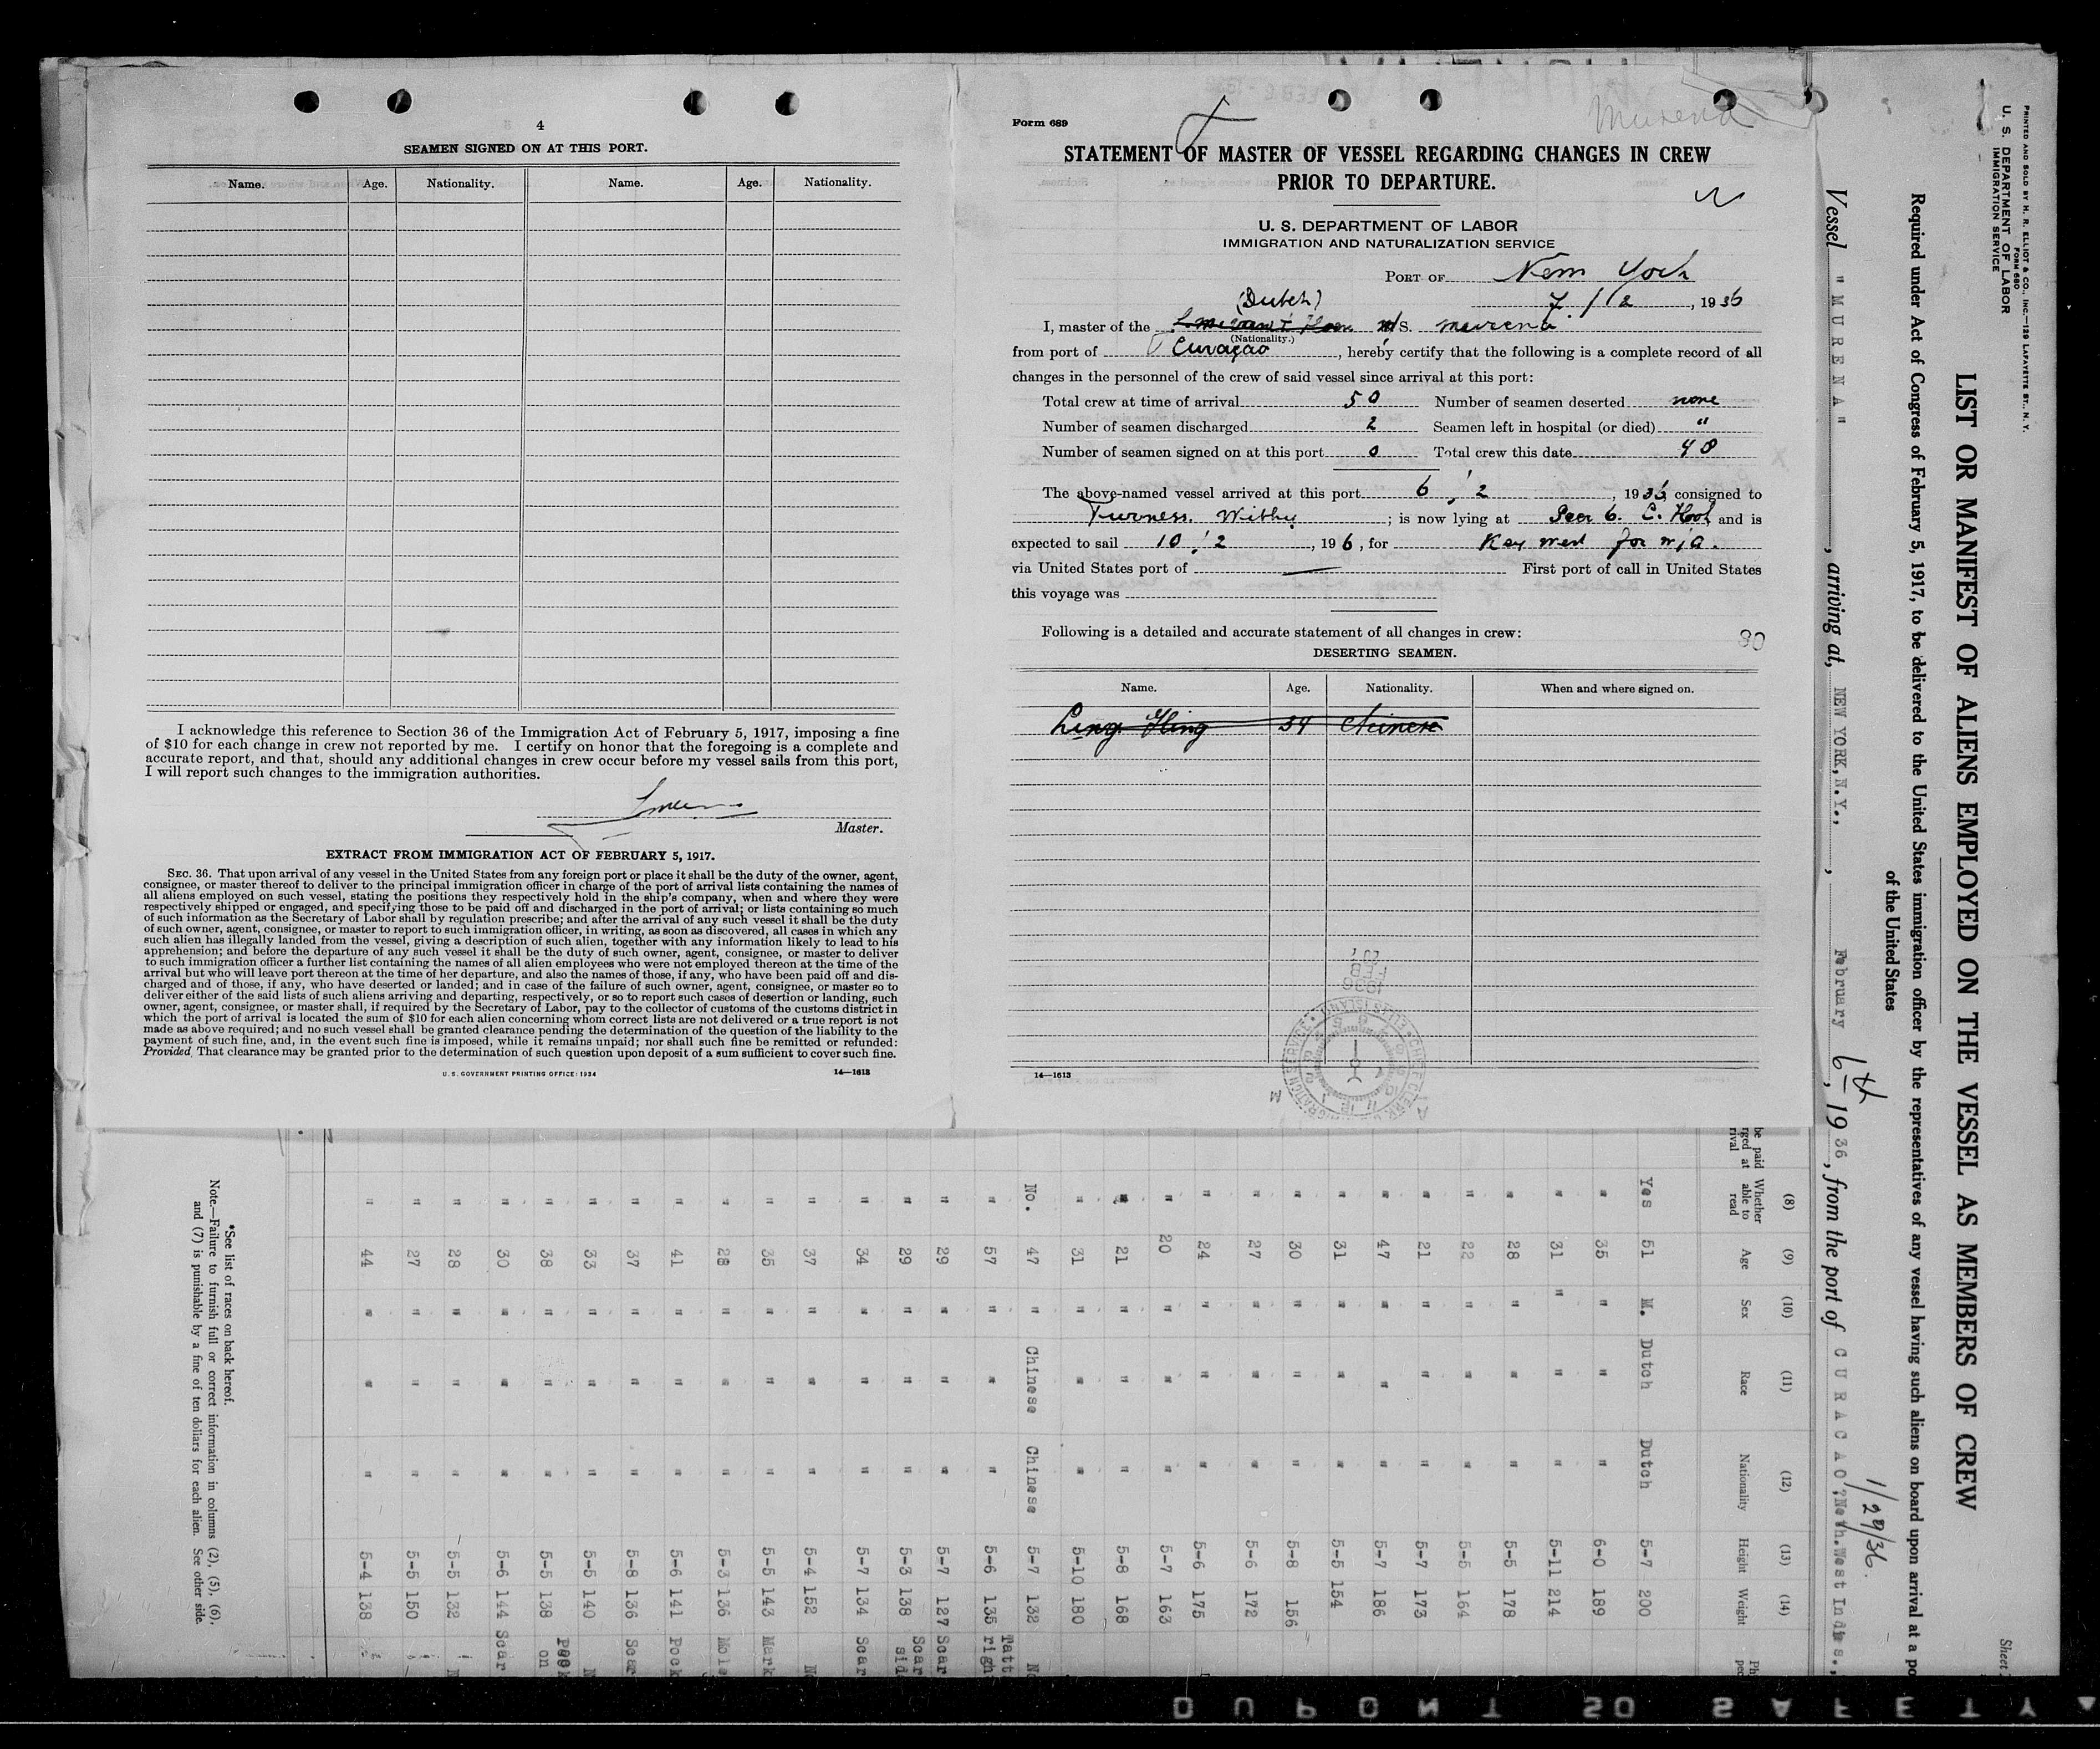 4
SEAMEN SIGNED ON AT THIS PORT.
Name. Age. Nationality. Name. Age. Nationality.
I acknowledge this reference to Section 36 of the Immigration Act of February 5, 1917, imposing a fine
of $10 for each change in crew not reported by me. I certify on honor that the foregoing is a complete and
accurate report, and that, should any additional changes in crew occur before my vessel sails from this port,
I will report such changes to the immigration authorities.
Master.
EXTRACT FROM IMMIGRATION ACT OF FEBRUARY 5, 1917.
SEC. 36. That upon arrival of any vessel in the United States from any foreign port or place it shall be the duty of the owner, agent,
consignee, or master thereof to deliver to the principal immigration officer in charge of the port of arrival lists containing the names of
all aliens employed on such vessel, stating the positions they respectively hold in the ship's company, when and where they were
respectively shipped or engaged, and specifying those to be paid off and discharged in the port of arrival; or lists containing so much
of such information as the Secretary of Labor shall by regulation prescribe; and after the arrival of any such vessel it shall be the duty
of such owner, agent, consignee, or master to report to such immigration officer, in writing, as soon as discovered, all cases in which any
such alien has illegally landed from the vessel, giving a description of such alien, together with any information likely to lead to his
apprehension; and before the departure of any such vessel it shall be the duty of such owner, agent, consignee, or master to deliver
to such immigration officer a further list containing the names of all alien employees who were not employed thereon at the time of the
arrival but who will leave port thereon at the time of her departure, and also the names of those, if any, who have been paid off and dis-
charged and of those, if any, who have deserted or landed; and in case of the failure of such owner, agent, consignee, or master so to
deliver either of the said lists of such aliens arriving and departing, respectively, or so to report such cases of desertion or landing, such
owner, agent, consignee, or master shall, if required by the Secretary of Labor, pay to the collector of customs of the customs district in
which the port of arrival is located the sum of $10 for each alien concerning whom correct lists are not delivered or a true report is not
made as above required; and no such vessel shall be granted clearance pending the determination of the question of the liability to the
payment of such fine, and, in the event such fine is imposed, while it remains unpaid; nor shall such fine be remitted or refunded:
Provided, That clearance may be granted prior to the determination of such question upon deposit of a sum sufficient to cover such fine.
U.S. GOVERNMENT PRINTING OFFICE: 1934 14—1613
Form 689
Murena
STATEMENT OF MASTER OF VESSEL REGARDING CHANGES IN CREW
PRIOR TO DEPARTURE.
U. S. DEPARTMENT OF LABOR
IMMIGRATION AND NATURALIZATION SERVICE
PORT OF New York
7/2, 1936
(Dutch)
I, master of the M/S. Murena
(Nationality.)
from port of Curaçao, hereby certify that the following is a complete record of all
changes in the personnel of the crew of said vessel since arrival at this port:
Total crew at time of arrival 50 Number of seamen deserted none
Number of seamen discharged 2 Seamen left in hospital (or died) "
Number of seamen signed on at this port 0 Total crew this date 48
The above-named vessel arrived at this port 6/2, 1936, consigned to
Furness. Withy; is now lying at Pier 6. C. Hook and is
expected to sail 10/2, 196, for Key West for
via United States port of — First port of call in United States
this voyage was
Following is a detailed and accurate statement of all changes in crew:
80
DESERTING SEAMEN.
Name. Age. Nationality. When and where signed on.
Ling 34 Chinese
1936
FEB
14—1613
PRINTED AND SOLD BY H. R. ELLIOT & CO., INC.—129 LAFAYETTE ST., N. Y.
FORM 680
U. S. DEPARTMENT OF LABOR
IMMIGRATION SERVICE
Sheet
LIST OR MANIFEST OF ALIENS EMPLOYED ON THE VESSEL AS MEMBERS OF CREW
Required under Act of Congress of February 5, 1917, to be delivered to the United States immigration officer by the representatives of any vessel having such aliens on board upon arrival at a po
of the United States
1/29/36.
Vessel "MURENA", arriving at, NEW YORK, N.Y., February 6th, 1936, from the port of CURACAO, Neth. West Indies.,
(8) (9) (10) (11) (12) (13) (14)
be paid rged at rival Whether able to read Age Sex Race Nationality Height Weight Ph pec
Yes 51 M. Dutch Dutch 5-7 200
" 35 " " " 6-0 189
" 31 " " " 5-11 214
" 28 " " " 5-5 178
" 22 " " " 5-5 164
" 21 " " " 5-7 173
" 47 " " " 5-7 186
" 31 " " " 5-5 154
" 30 " " " 5-8 156
" 27 " " " 5-6 172
" 24 " " " 5-6 175
" 20 " " " 5-7 163
" 21 " " " 5-8 168
" 31 " " " 5-10 180
No. 47 " Chinese Chinese 5-7 132 No
" 57 " " " 5-6 135 Tatt righ
" 29 " " " 5-7 127 Scar
" 29 " " " 5-3 138 Scar sid
" 34 " " " 5-7 134 Scar
" 37 " " " 5-4 152 No
" 35 " " " 5-5 143 Mark
" 28 " " " 5-3 136 Mole
" 41 " " " 5-6 141 Pock
" 37 " " " 5-8 136 Scar
" 33 " " " 5-5 140 N
" 38 " " " 5-5 138 Pock on
" 30 " " " 5-6 144 Scar
" 28 " " " 5-5 132 N
" 27 " " " 5-5 150
" 44 " " " 5-4 138
*See list of races on back hereof.
Note.—Failure to furnish full or correct information in columns (2), (5), (6),
and (7) is punishable by a fine of ten dollars for each alien. See other side.
DUPONT SO SAFETY